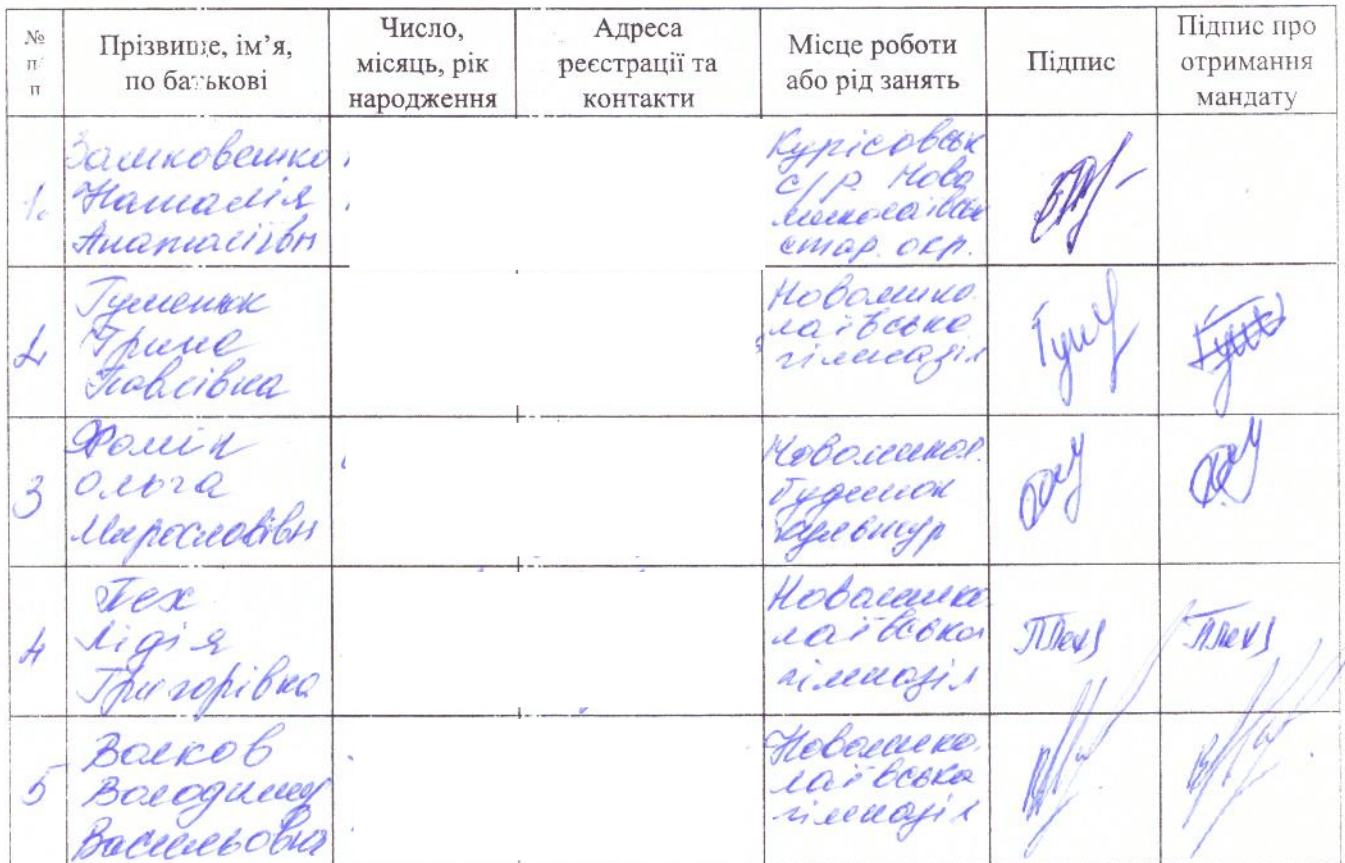 № п/п
Прізвище, ім’я, по батькові
Число, місяць, рік народження
Адреса реєстрації та контакти
Місце роботи або рід занять
Підпис
Підпис про отримання мандату
1.
Замковешко
Наталія
Анатоліївн
Курісовськ
с/р Ново
миколаївськ
стар. окр.
2
Гуменюк
Ірина
Павлівна
Новомико
лаївська
гімназія
3
Фомін
Ольга
Мирославівн
Новомикол.
будинок
культур
4
Пех
Лідія
Григорівна
Новомико
лаївська
гімназія
5
Волков
Володимир
Васильович
Новомико
лаївська
гімназія